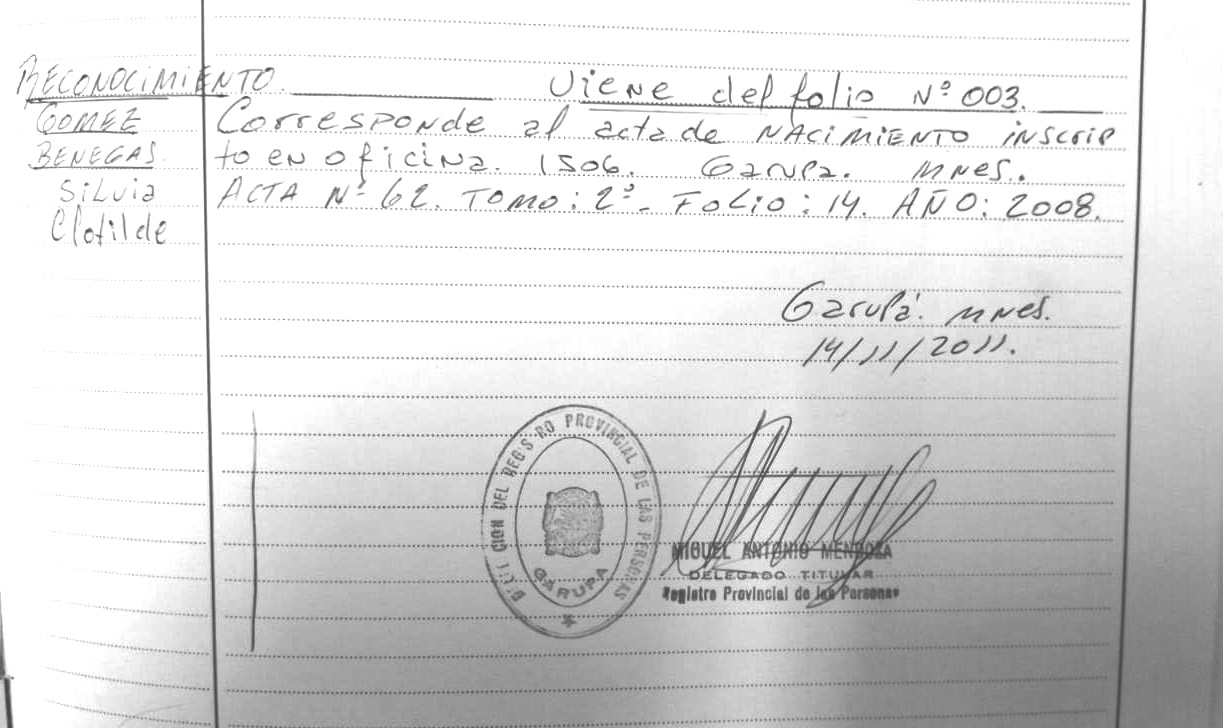 RECONOCIMIENTO Viene del folio Nº 003.
GOMEZ
BENEGAS
Silvia
Clotilde
Corresponde al acta de NACIMIENTO inscrip
to en oficina. 1506. Garupa. Mnes.
ACTA Nº 62. TOMO: 2º- FOLIO: 14. AÑO: 2008.
Garupá. Mnes.
14/11/2011.
CION DEL REGISTRO PROVINCIAL DE LAS PERSONAS
GARUPA
MIGUEL ANTONIO MENDOZA
DELEGADO TITULAR
Registro Provincial de las Personas